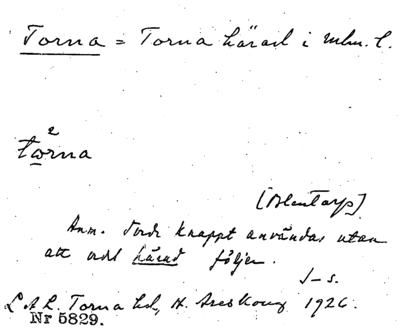 Torna = Torna härad i Mlm. l.
2
tωrna
[Blentarp]
Anm. Torde knappt användas utan
att ordet härad följer.
J–s.
L.A.L. Torna hd, H. Areskoug 1926.
Nr 5829.